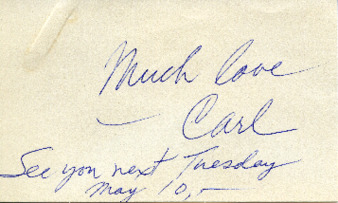 Much love
— Carl
See you next Tuesday
May 10,—